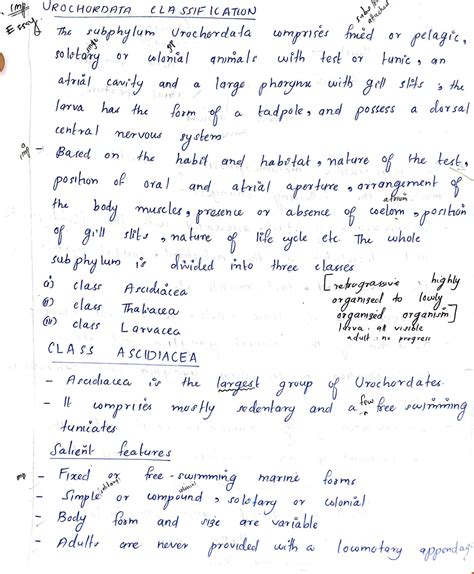 imp UROCHORDATA CLASSIFICATION
Essay The subphylum Urochordata comprises fixed or pelagic,
attached
solotary or colonial animals with test or tunic, an
atrial cavity and a large pharynx with gill slits, the
larva has the form of a tadpole, and possess a dorsal
central nervous system
imp - Based on the habit and habitat, nature of the test,
position of oral and atrial aperture, arrangement of
the body muscles, presence or absence of atrium coelom, position
of gill slits, nature of life cycle etc. The whole
subphylum is divided into three classes
i) class Ascidiacea [retrogressive, highly
ii) class Thaliacea organised to lowly
(iii) class Larvacea organised organism]
larva - all visible
adult - no progress
CLASS ASCIDIACEA
- Ascidiacea is the largest group of Urochordates.
- It comprises mostly sedentary and a few free swimming
tunicates
Salient features
imp - Fixed or free-swimming marine forms
- Simple or compound, solotary or colonial
solitary colonial
- Body form and size are variable
- Adults are never provided with a locomotary appendag